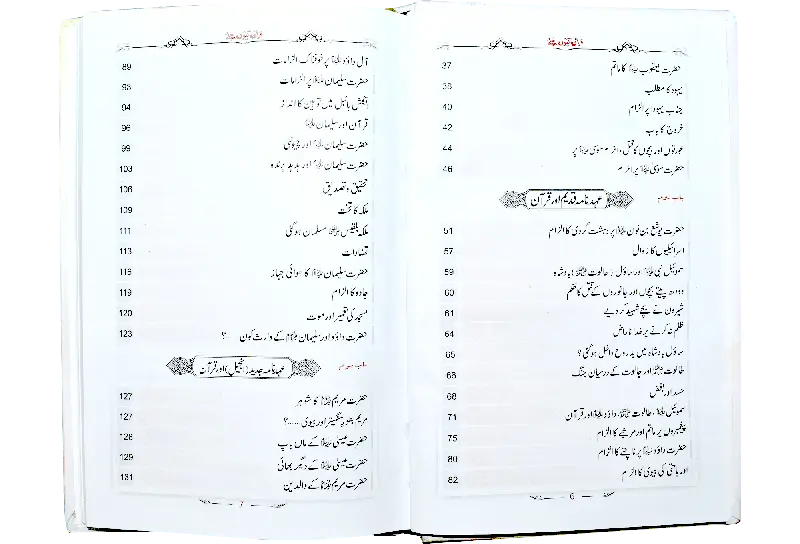 حضرت یعقوب علیہ السلام کا ماتم 37
یہود کا مطلب 38
جناب یہودا پر الزام 40
خروج کا باب 42
عورتوں اور بچوں کا قتل، الزام موسیٰ علیہ السلام پر 44
حضرت موسیٰ علیہ السلام پر الزام 46
باب دوم
عہد نامہ قدیم اور قرآن
حضرت یوشع بن نون علیہ السلام پر دہشت گردی کا الزام 51
اسرائیلیوں کا زوال 57
سموئیل نبی علیہ السلام اور ساؤل، طالوت علیہ السلام بادشاہ 59
دودھ پیتے بچوں اور جانوروں کے قتل کا حکم 60
شہروں کے شہید کر دیے 61
ظلم نہ کرنے پر خدا ناراض 64
ساؤل بادشاہ میں بد روح داخل ہو گئی؟ 65
طالوت علیہ السلام اور جالوت کے درمیان جنگ 68
حسد اور بغض 68
سموئیل علیہ السلام، طالوت علیہ السلام، داؤد علیہ السلام اور قرآن 71
پیغمبروں پر ماتم اور مرثیے کا الزام 75
حضرت داؤد علیہ السلام پر ناچنے کا الزام 80
اور یاہ کی بیوی کا الزام 82
6
آل داؤد علیہ السلام پر خوفناک الزامات 89
حضرت سلیمان علیہ السلام پر الزامات 93
انگلش بائبل میں توہین کا انداز 94
قرآن اور سلیمان علیہ السلام 96
حضرت سلیمان علیہ السلام اور چیونٹی 99
حضرت سلیمان علیہ السلام اور ہدہد پرندہ 103
تحقیق و تصدیق 106
ملکہ کا تخت 109
ملکہ بلقیس مسلمان ہو گئی 111
تضادات 113
حضرت سلیمان علیہ السلام کا ہوائی جہاز 118
جادو کا الزام 119
مسجد کی تعمیر اور موت 120
حضرت داؤد اور سلیمان علیہ السلام کے وارث کون ؟ 123
باب سوم
عہد نامہ جدید (انجیل) اور قرآن
حضرت مریم علیہا السلام کا شوہر 127
مریم علیہا السلام منگیتر اور بیوی ۔۔۔۔؟ 127
حضرت عیسیٰ علیہ السلام کے ماں باپ 128
حضرت عیسیٰ علیہ السلام کے دیگر بھائی 129
حضرت مریم علیہا السلام کے والدین 131
7